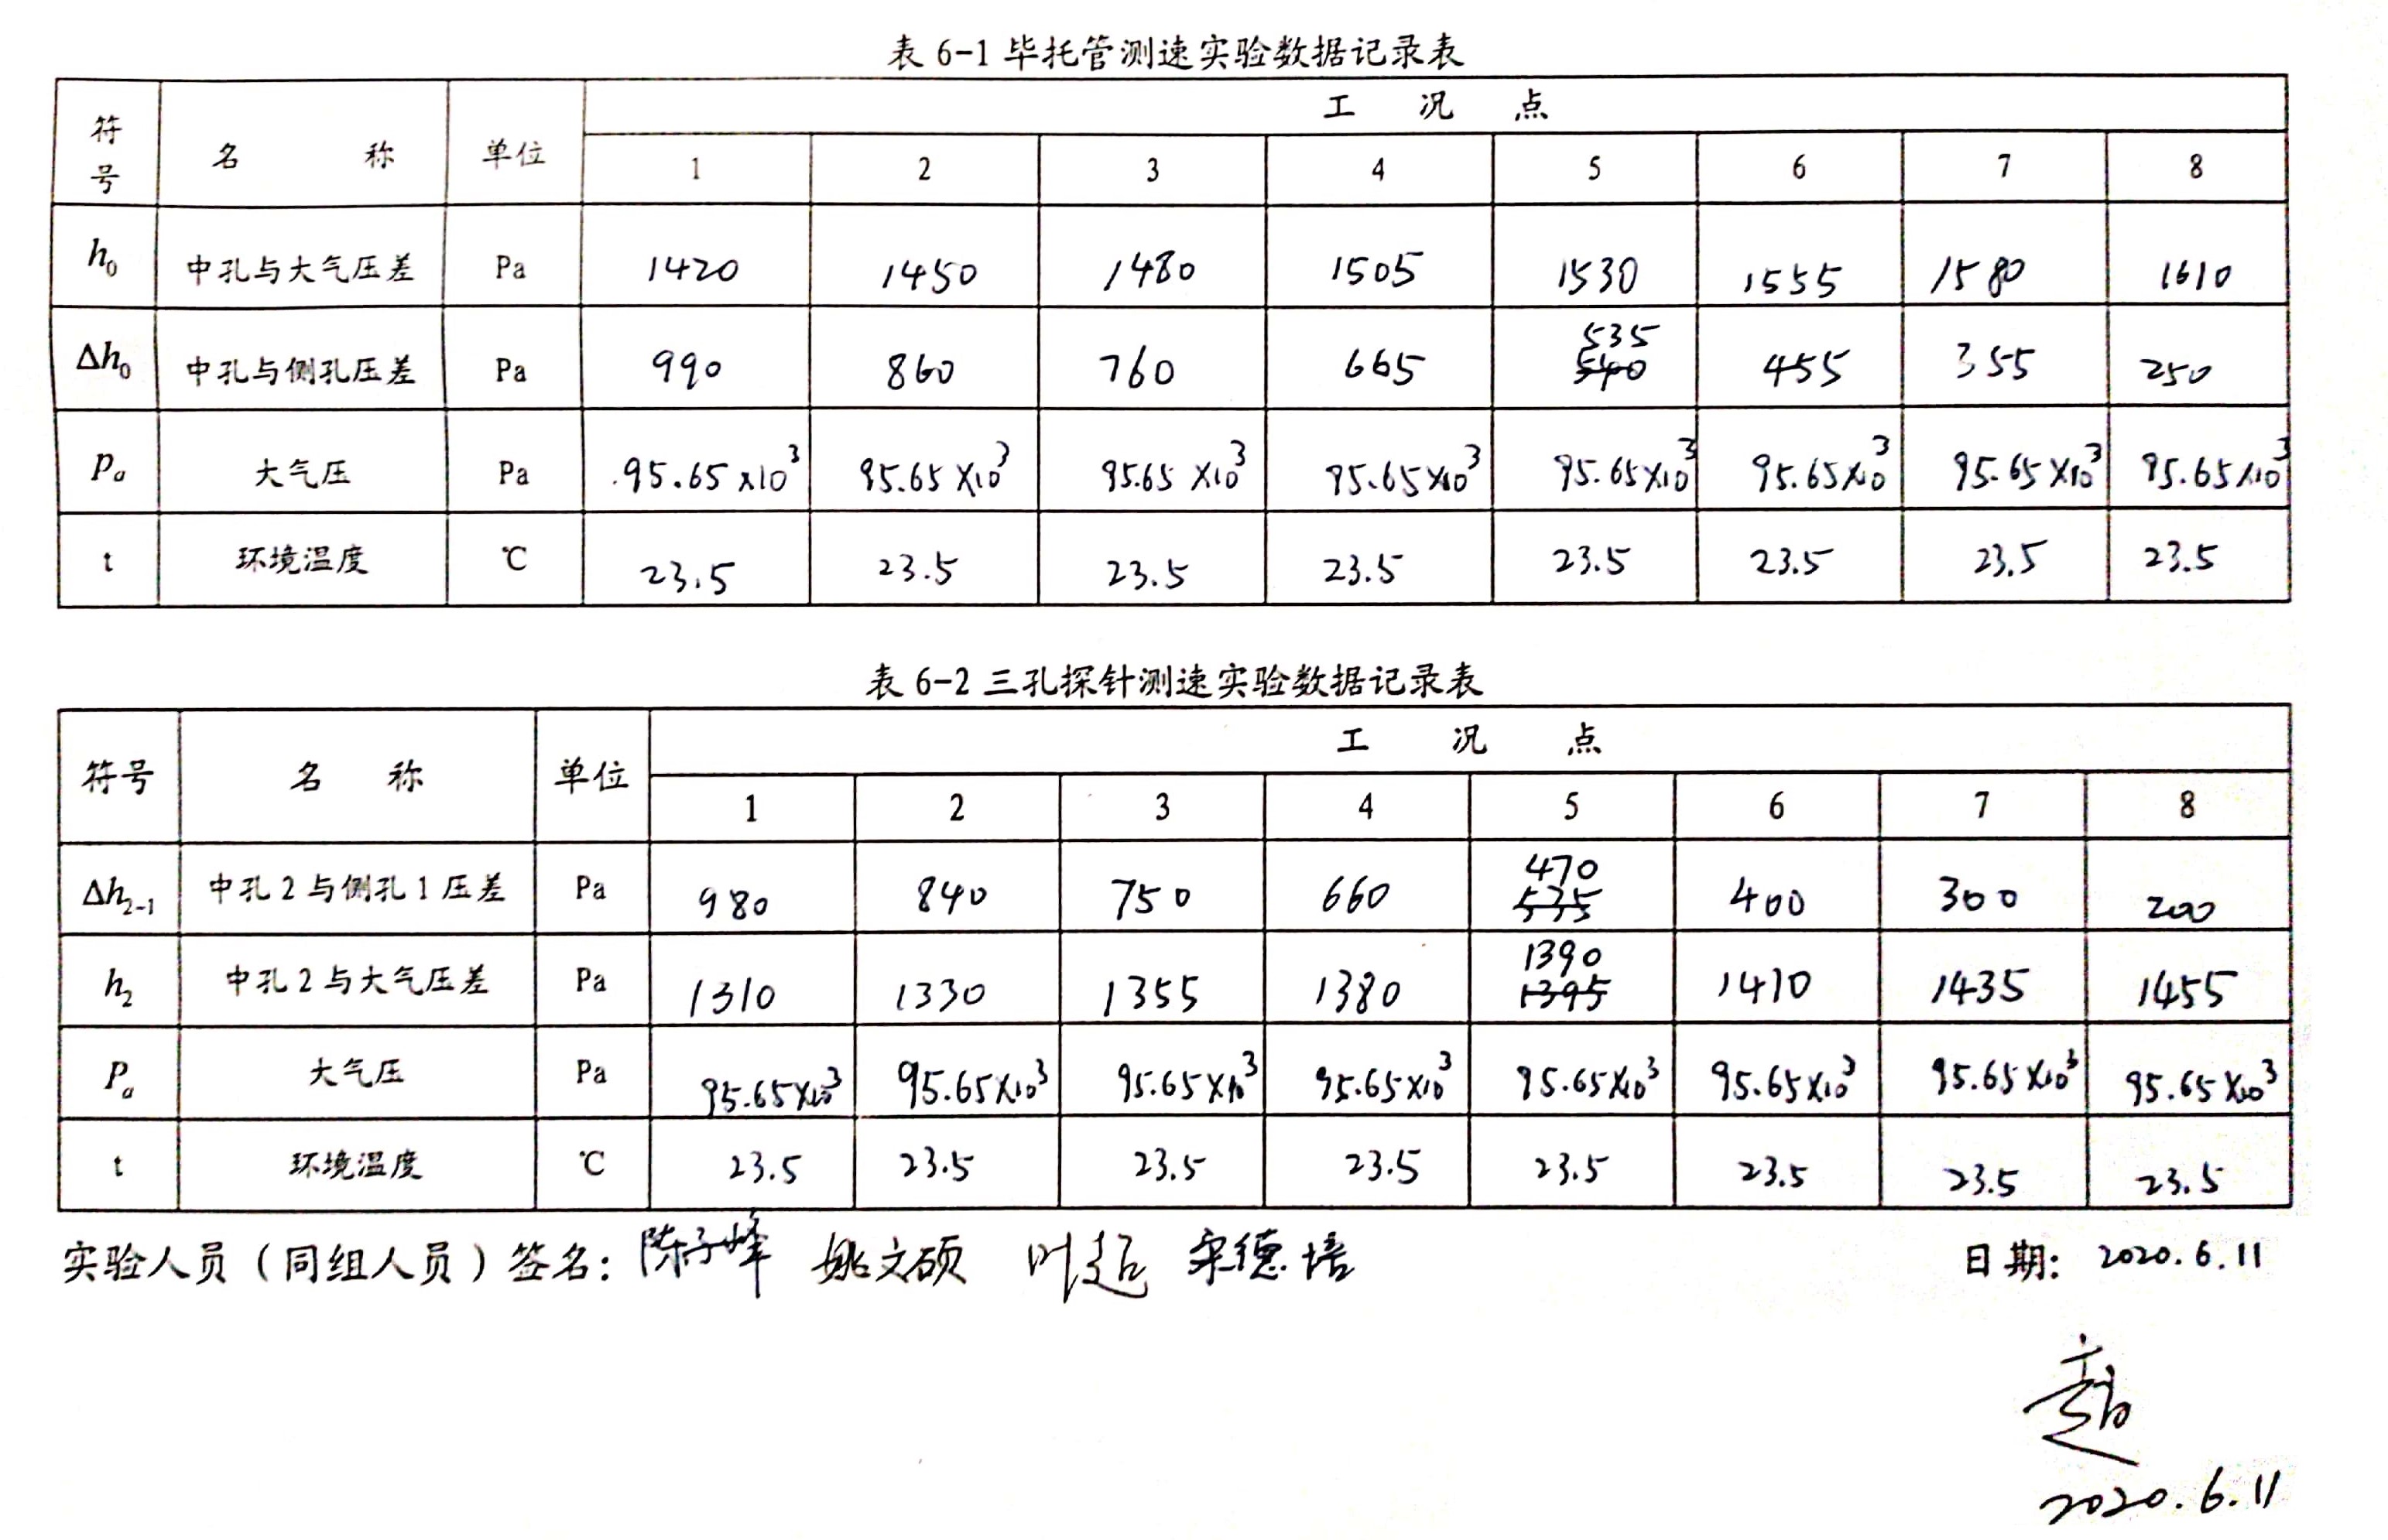 表 6-1 毕托管测速实验数据记录表
符号 名 称 单位 工 况 点
1 2 3 4 5 6 7 8
h₀ 中孔与大气压差 Pa 1420 1450 1480 1505 1530 1555 1580 1610
Δh₀ 中孔与侧孔压差 Pa 990 860 760 665 535 540 455 355 250
Pₐ 大气压 Pa 95.65×10³ 95.65×10³ 95.65×10³ 95.65×10³ 95.65×10³ 95.65×10³ 95.65×10³ 95.65×10³
t 环境温度 ℃ 23.5 23.5 23.5 23.5 23.5 23.5 23.5 23.5
表 6-2 三孔探针测速实验数据记录表
符号 名 称 单位 工 况 点
1 2 3 4 5 6 7 8
Δh₂₋₁ 中孔2与侧孔1压差 Pa 980 840 750 660 470 535 400 300 200
h₂ 中孔2与大气压差 Pa 1310 1330 1355 1380 1390 1395 1410 1435 1455
Pₐ 大气压 Pa 95.65×10³ 95.65×10³ 95.65×10³ 95.65×10³ 95.65×10³ 95.65×10³ 95.65×10³ 95.65×10³
t 环境温度 ℃ 23.5 23.5 23.5 23.5 23.5 23.5 23.5 23.5
实验人员（同组人员）签名： 陈子烽 姚文硕 叶超 宋德培 日期： 2020.6.11
2020.6.11